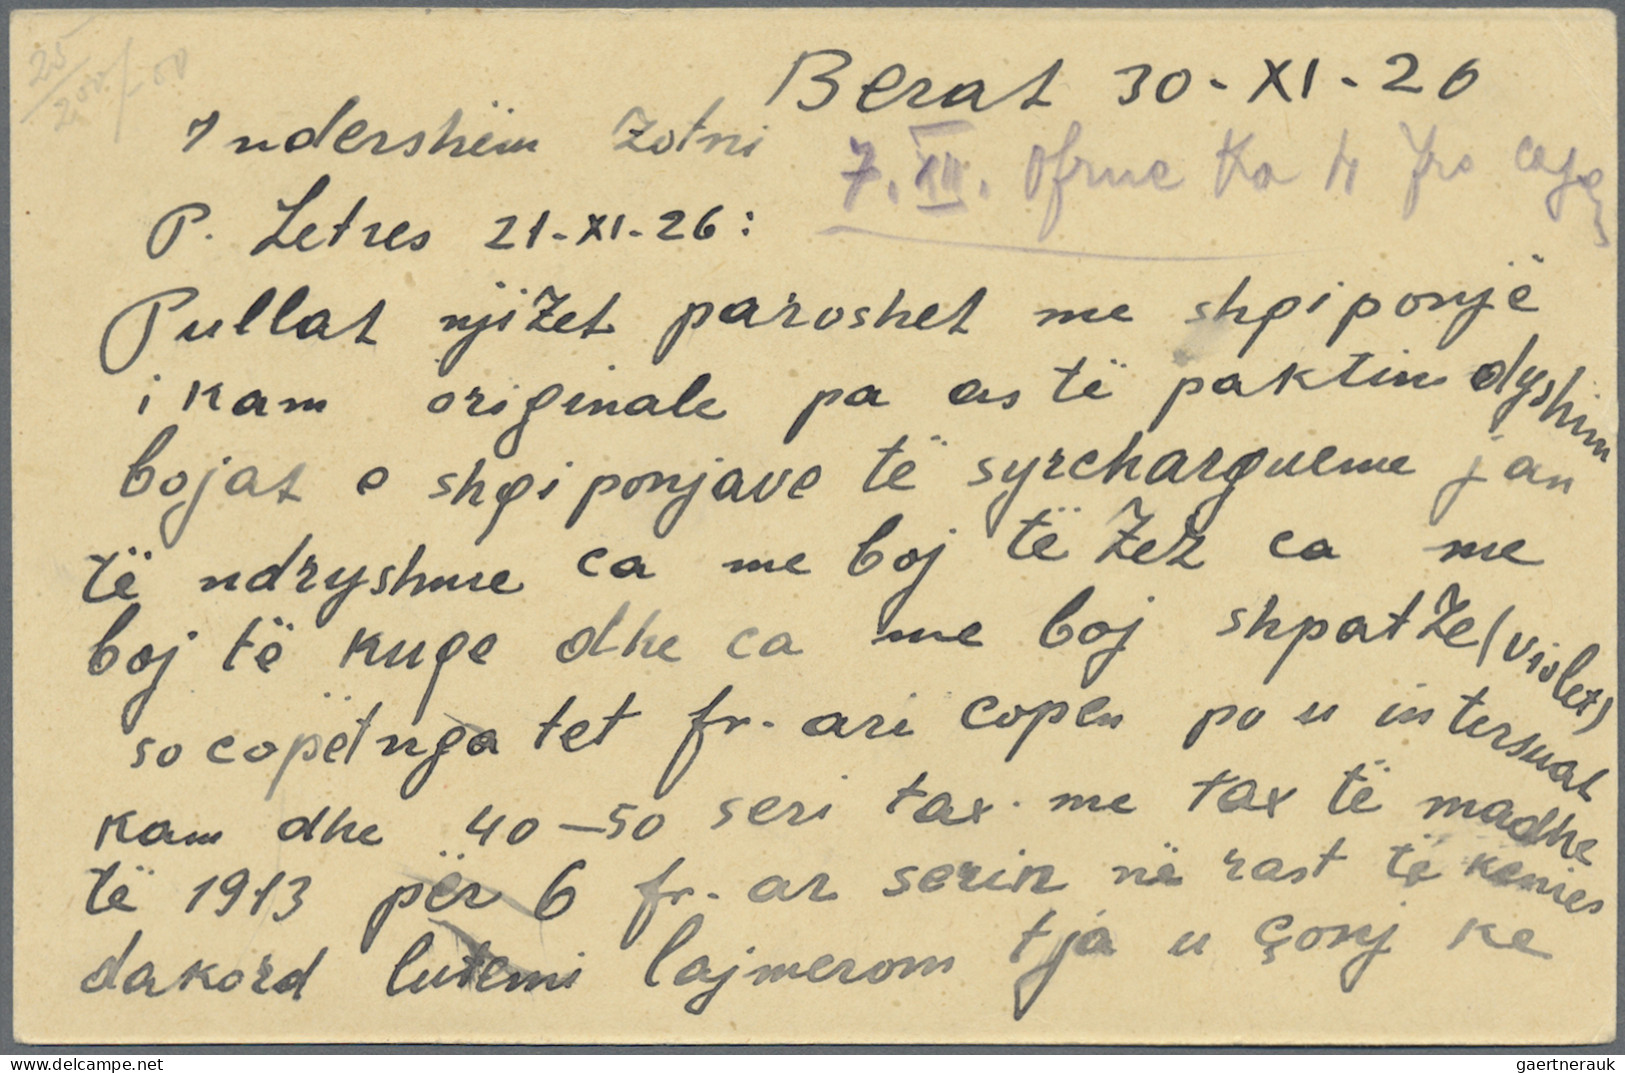 Berat 30-XI-26
Indershëm Zotni
7. XII. Ofrue Ka
P. Letres 21-XI-26:
Pullat njizet paroshet me shqiponjë
i kam originale pa as të paktin dyshim
bojat e shqiponjave të syrchargueme jan
të ndryshme ca me boj të zez ca me
boj të kuqe dhe ca me boj shpatze (violet)
so copët nga tet fr. ari copen po u intersuat
kam dhe 40-50 seri tax. me tax të madhe
të 1913 për 6 fr. ar serin në rast të kenies
dakord lutemi lajmerom tja u çonj ke
www.delcampe.net
gaertnerauk